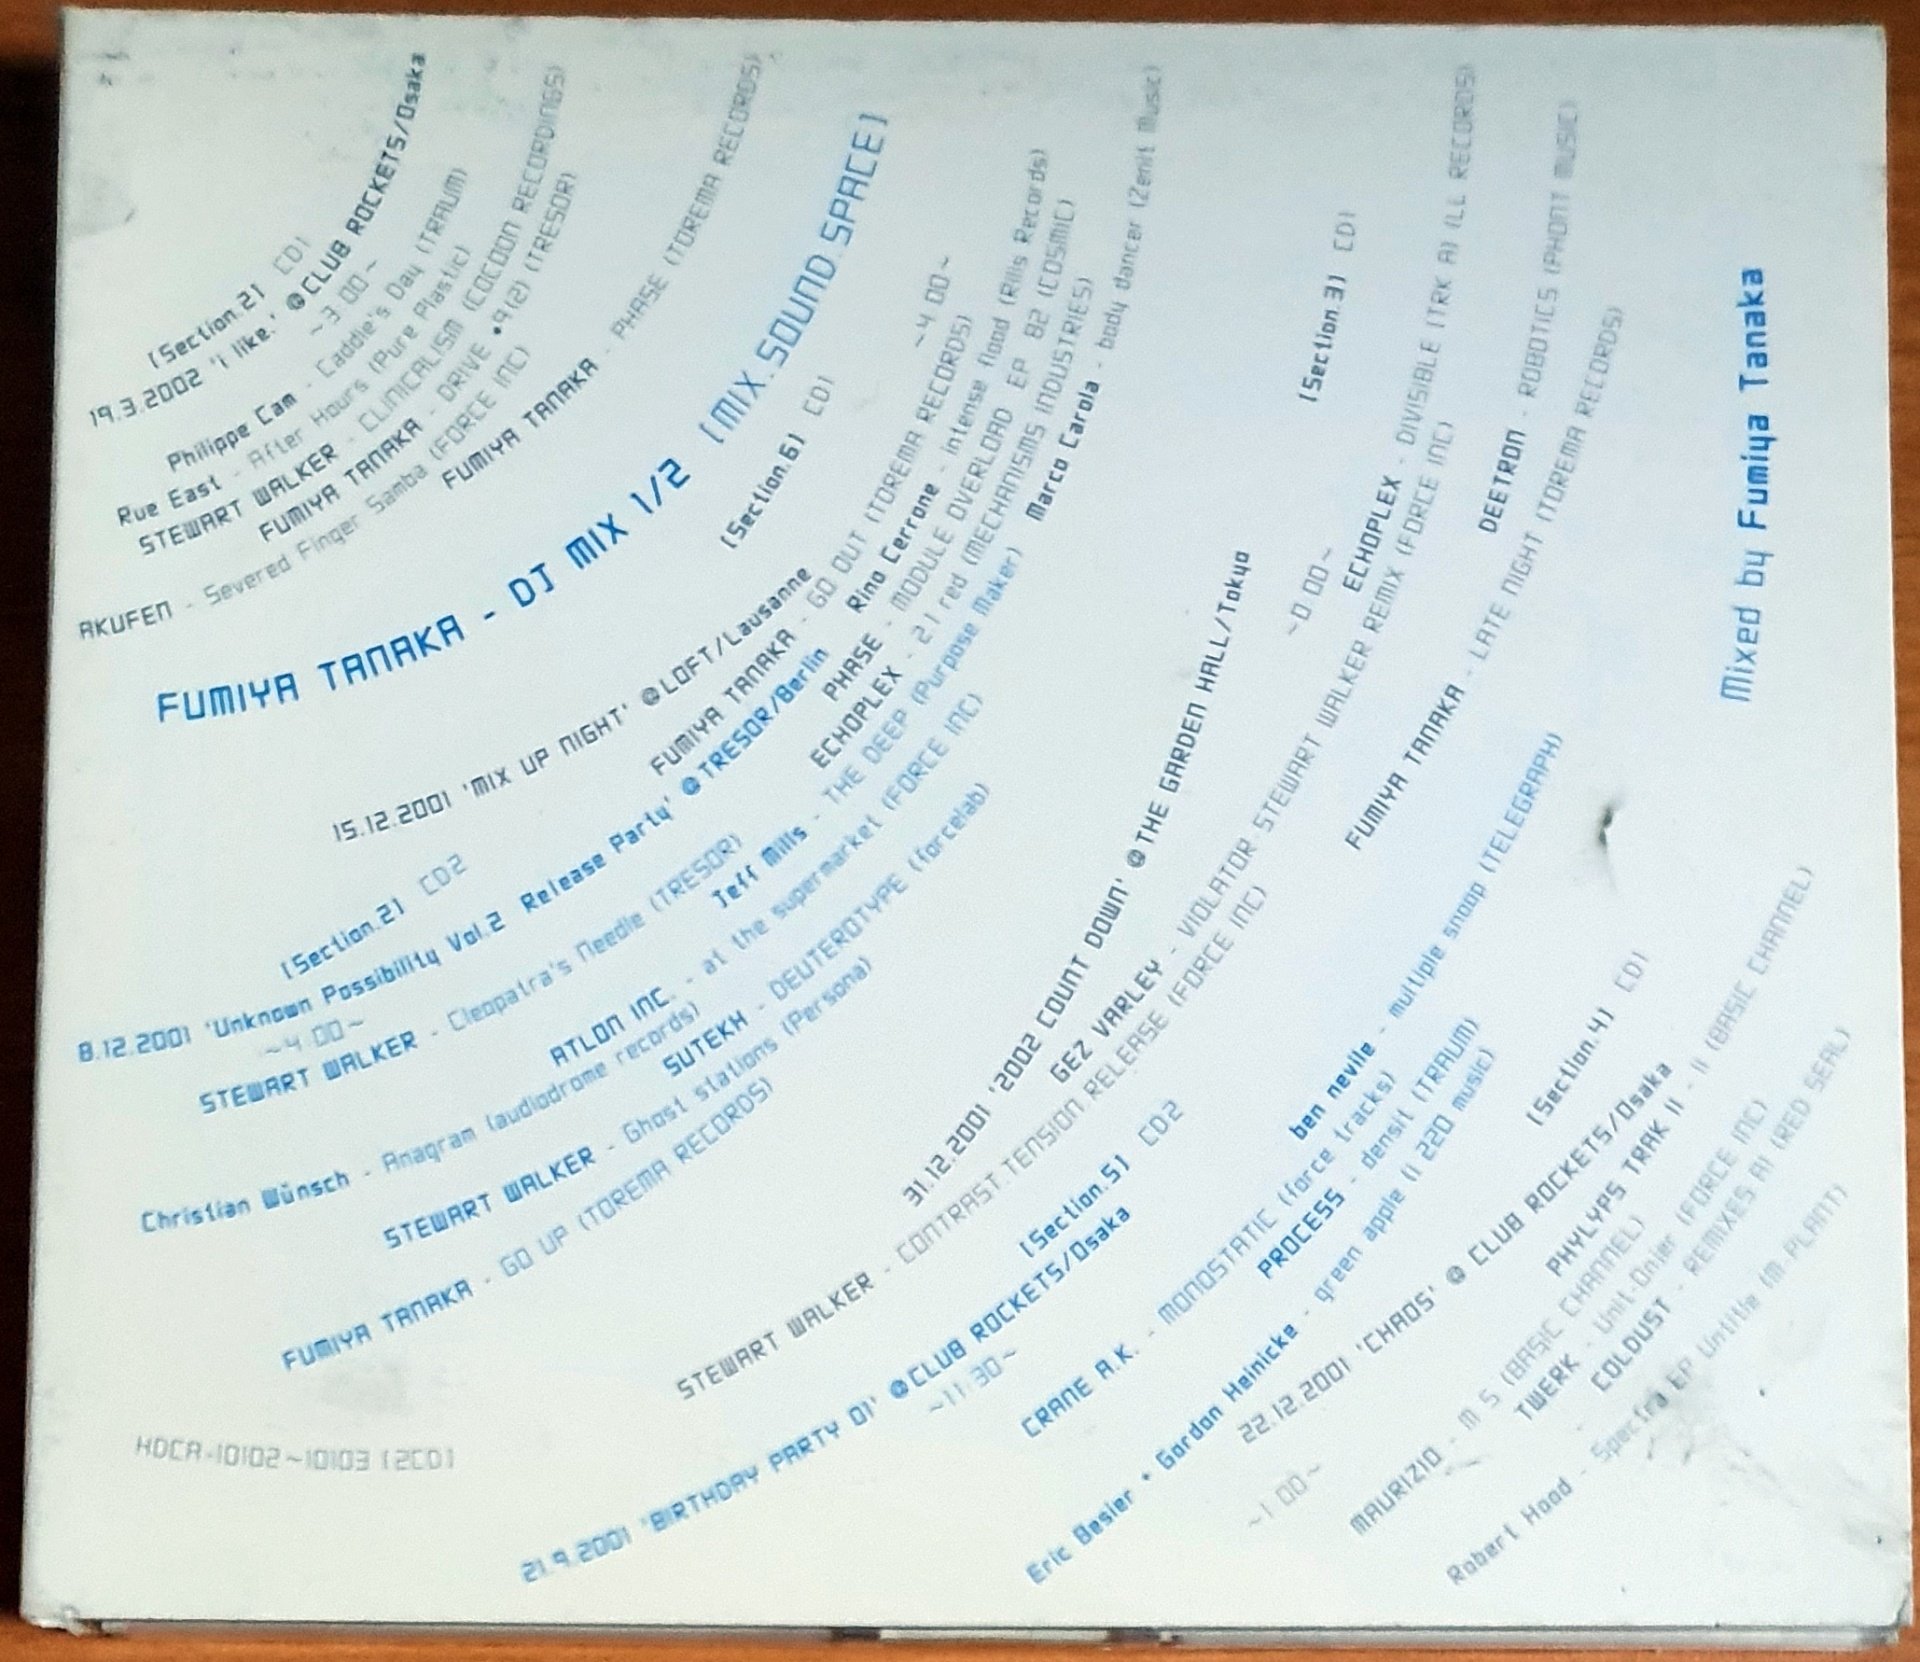 [Section.2] CD1
19.3.2002 'i like.' @CLUB ROCKETS/Osaka
~3:00~
Philippe Cam - Caddie's Day (TRAUM)
Rue East - After Hours (Pure Plastic)
STEWART WALKER - CLINICALISM (COCOON RECORDINGS)
FUMIYA TANAKA - DRIVE •9(2) (TRESOR)
AKUFEN - Severed Finger Samba (FORCE INC)
FUMIYA TANAKA - PHASE (TOREMA RECORDS)
FUMIYA TANAKA - DJ MIX 1/2 [MIX.SOUND.SPACE]
[Section.6] CD1
15.12.2001 'MIX UP NIGHT' @LOFT/Lausanne
~4:00~
FUMIYA TANAKA - GO OUT (TOREMA RECORDS)
Rino Cerrone - intense flood (Rilis Records)
PHASE - MODULE OVERLOAD EP B2 (COSMIC)
ECHOPLEX - 2.1 red (MECHANISMS INDUSTRIES)
Marco Carola - body dancer (Zenit Music)
[Section.2] CD2
8.12.2001 'Unknown Possibility Vol.2 Release Party' @TRESOR/Berlin
~4:00~
STEWART WALKER - Cleopatra's Needle (TRESOR)
Jeff Mills - THE DEEP (Purpose Maker)
ATLON INC. - at the supermarket (FORCE INC)
Christian Wünsch - Anagram (audiodrome records)
SUTEKH - DEUTEROTYPE (forcelab)
STEWART WALKER - Ghost stations (Persona)
FUMIYA TANAKA - GO UP (TOREMA RECORDS)
[Section.3] CD1
31.12.2001 '2002 COUNT DOWN' @THE GARDEN HALL/Tokyo
~0:00~
GEZ VARLEY - VIOLATOR STEWART WALKER REMIX (FORCE INC)
ECHOPLEX - DIVISIBLE (TRK A) (LL RECORDS)
STEWART WALKER - CONTRAST.TENSION RELEASE (FORCE INC)
DEETRON - ROBOTICS (PHONT MUSIC)
FUMIYA TANAKA - LATE NIGHT (TOREMA RECORDS)
[Section.5] CD2
21.9.2001 'BIRTHDAY PARTY 01' @CLUB ROCKETS/Osaka
~11:30~
CRANE A.K. - MONOSTATIC (force tracks)
ben nevile - multiple snoop (TELEGRAPH)
PROCESS - densit (TRAUM)
Eric Besier + Gordon Heinicke - green apple (i 220 music)
[Section.4] CD1
22.12.2001 'CHAOS' @ CLUB ROCKETS/Osaka
~1:00~
PHYLYPS TRAK II - II (BASIC CHANNEL)
MAURIZIO - M 5 (BASIC CHANNEL)
TWERK - Unit-Onier (FORCE INC)
COLDUST - REMIXES A1 (RED SEAL)
Robert Hood - Spectra EP Untitle (M-PLANT)
Mixed by Fumiya Tanaka
HDCA-10102~10103 [2CD]